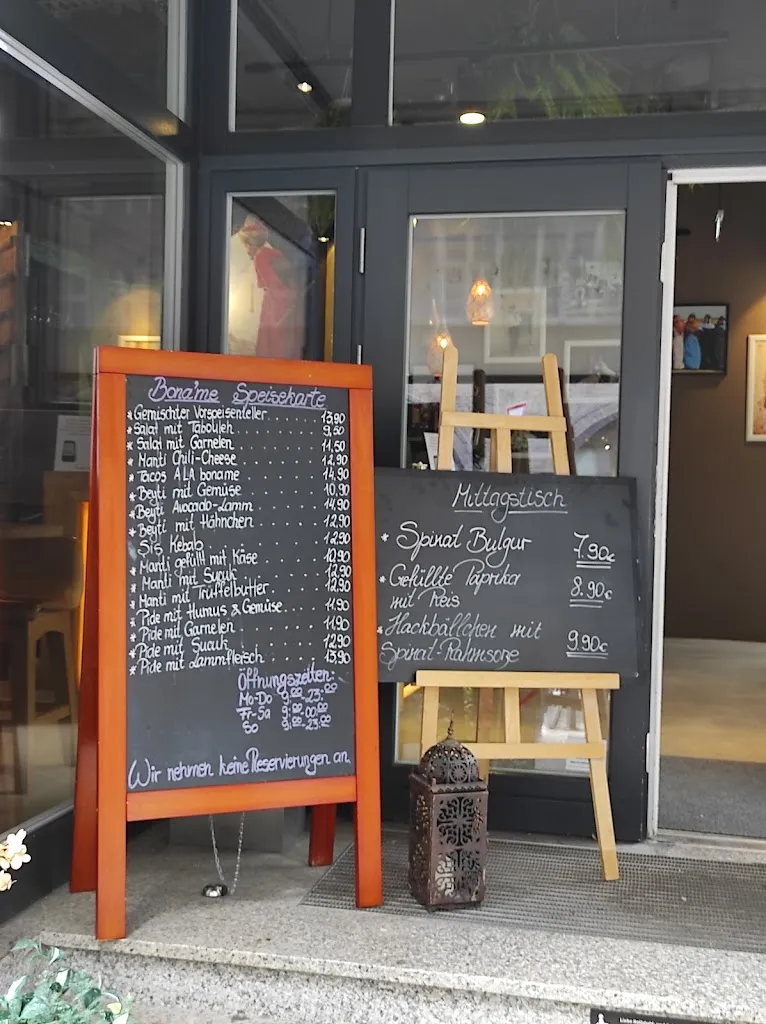 Bona'me Speisekarte
* Gemischter Vorspeisenteller . . . . 13,90
* Salat mit Tabouleh . . . . 9,50
* Salat mit Garnelen . . . . 11,50
* Manti Chili-Cheese . . . . 12,90
* Tacos A LA boname . . . . 14,90
* Beyti mit Gemüse . . . . 10,90
* Beyti Avocado-Lamm . . . . 14,90
* Beyti mit Hähnchen . . . . 12,90
* Şiş Kebab . . . . 12,90
* Manti gefüllt mit Käse . . . . 10,90
* Manti mit Sucuk . . . . 12,90
* Manti mit Trüffelbutter . . . . 12,90
* Pide mit Humus & Gemüse . . . . 11,90
* Pide mit Garnelen . . . . 11,90
* Pide mit Sucuk . . . . 12,90
* Pide mit Lammfleisch . . . . 13,90
Öffnungszeiten:
Mo-Do 9:00-23:00
Fr-Sa 9:00-00:00
So 9:00-23:00
Wir nehmen keine Reservierungen an.
Mittagstisch
* Spinat Bulgur 7.90€
* Gefüllte Paprika 8.90€
mit Reis
* Hackbällchen mit 9.90€
Spinat-Rahmsoße